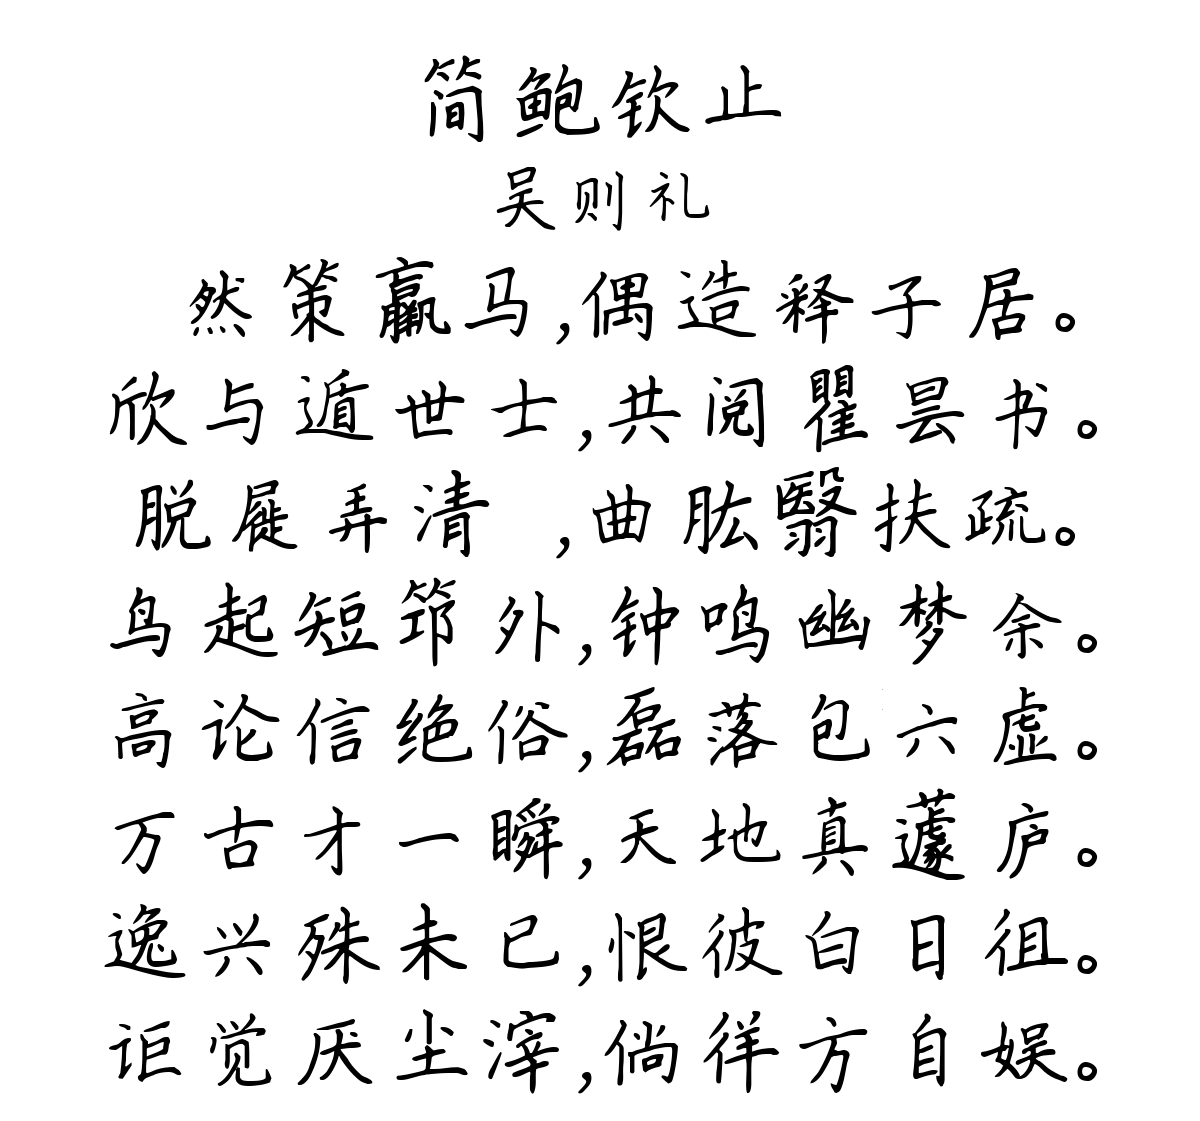 简鲍钦止
吴则礼
然策羸马,偶造释子居。
欣与遁世士,共阅瞿昙书。
脱屣弄清 ,曲肱翳扶疏。
鸟起短筇外,钟鸣幽梦余。
高论信绝俗,磊落包六虚。
万古才一瞬,天地真蘧庐。
逸兴殊未已,恨彼白日徂。
讵觉厌尘滓,倘徉方自娱。